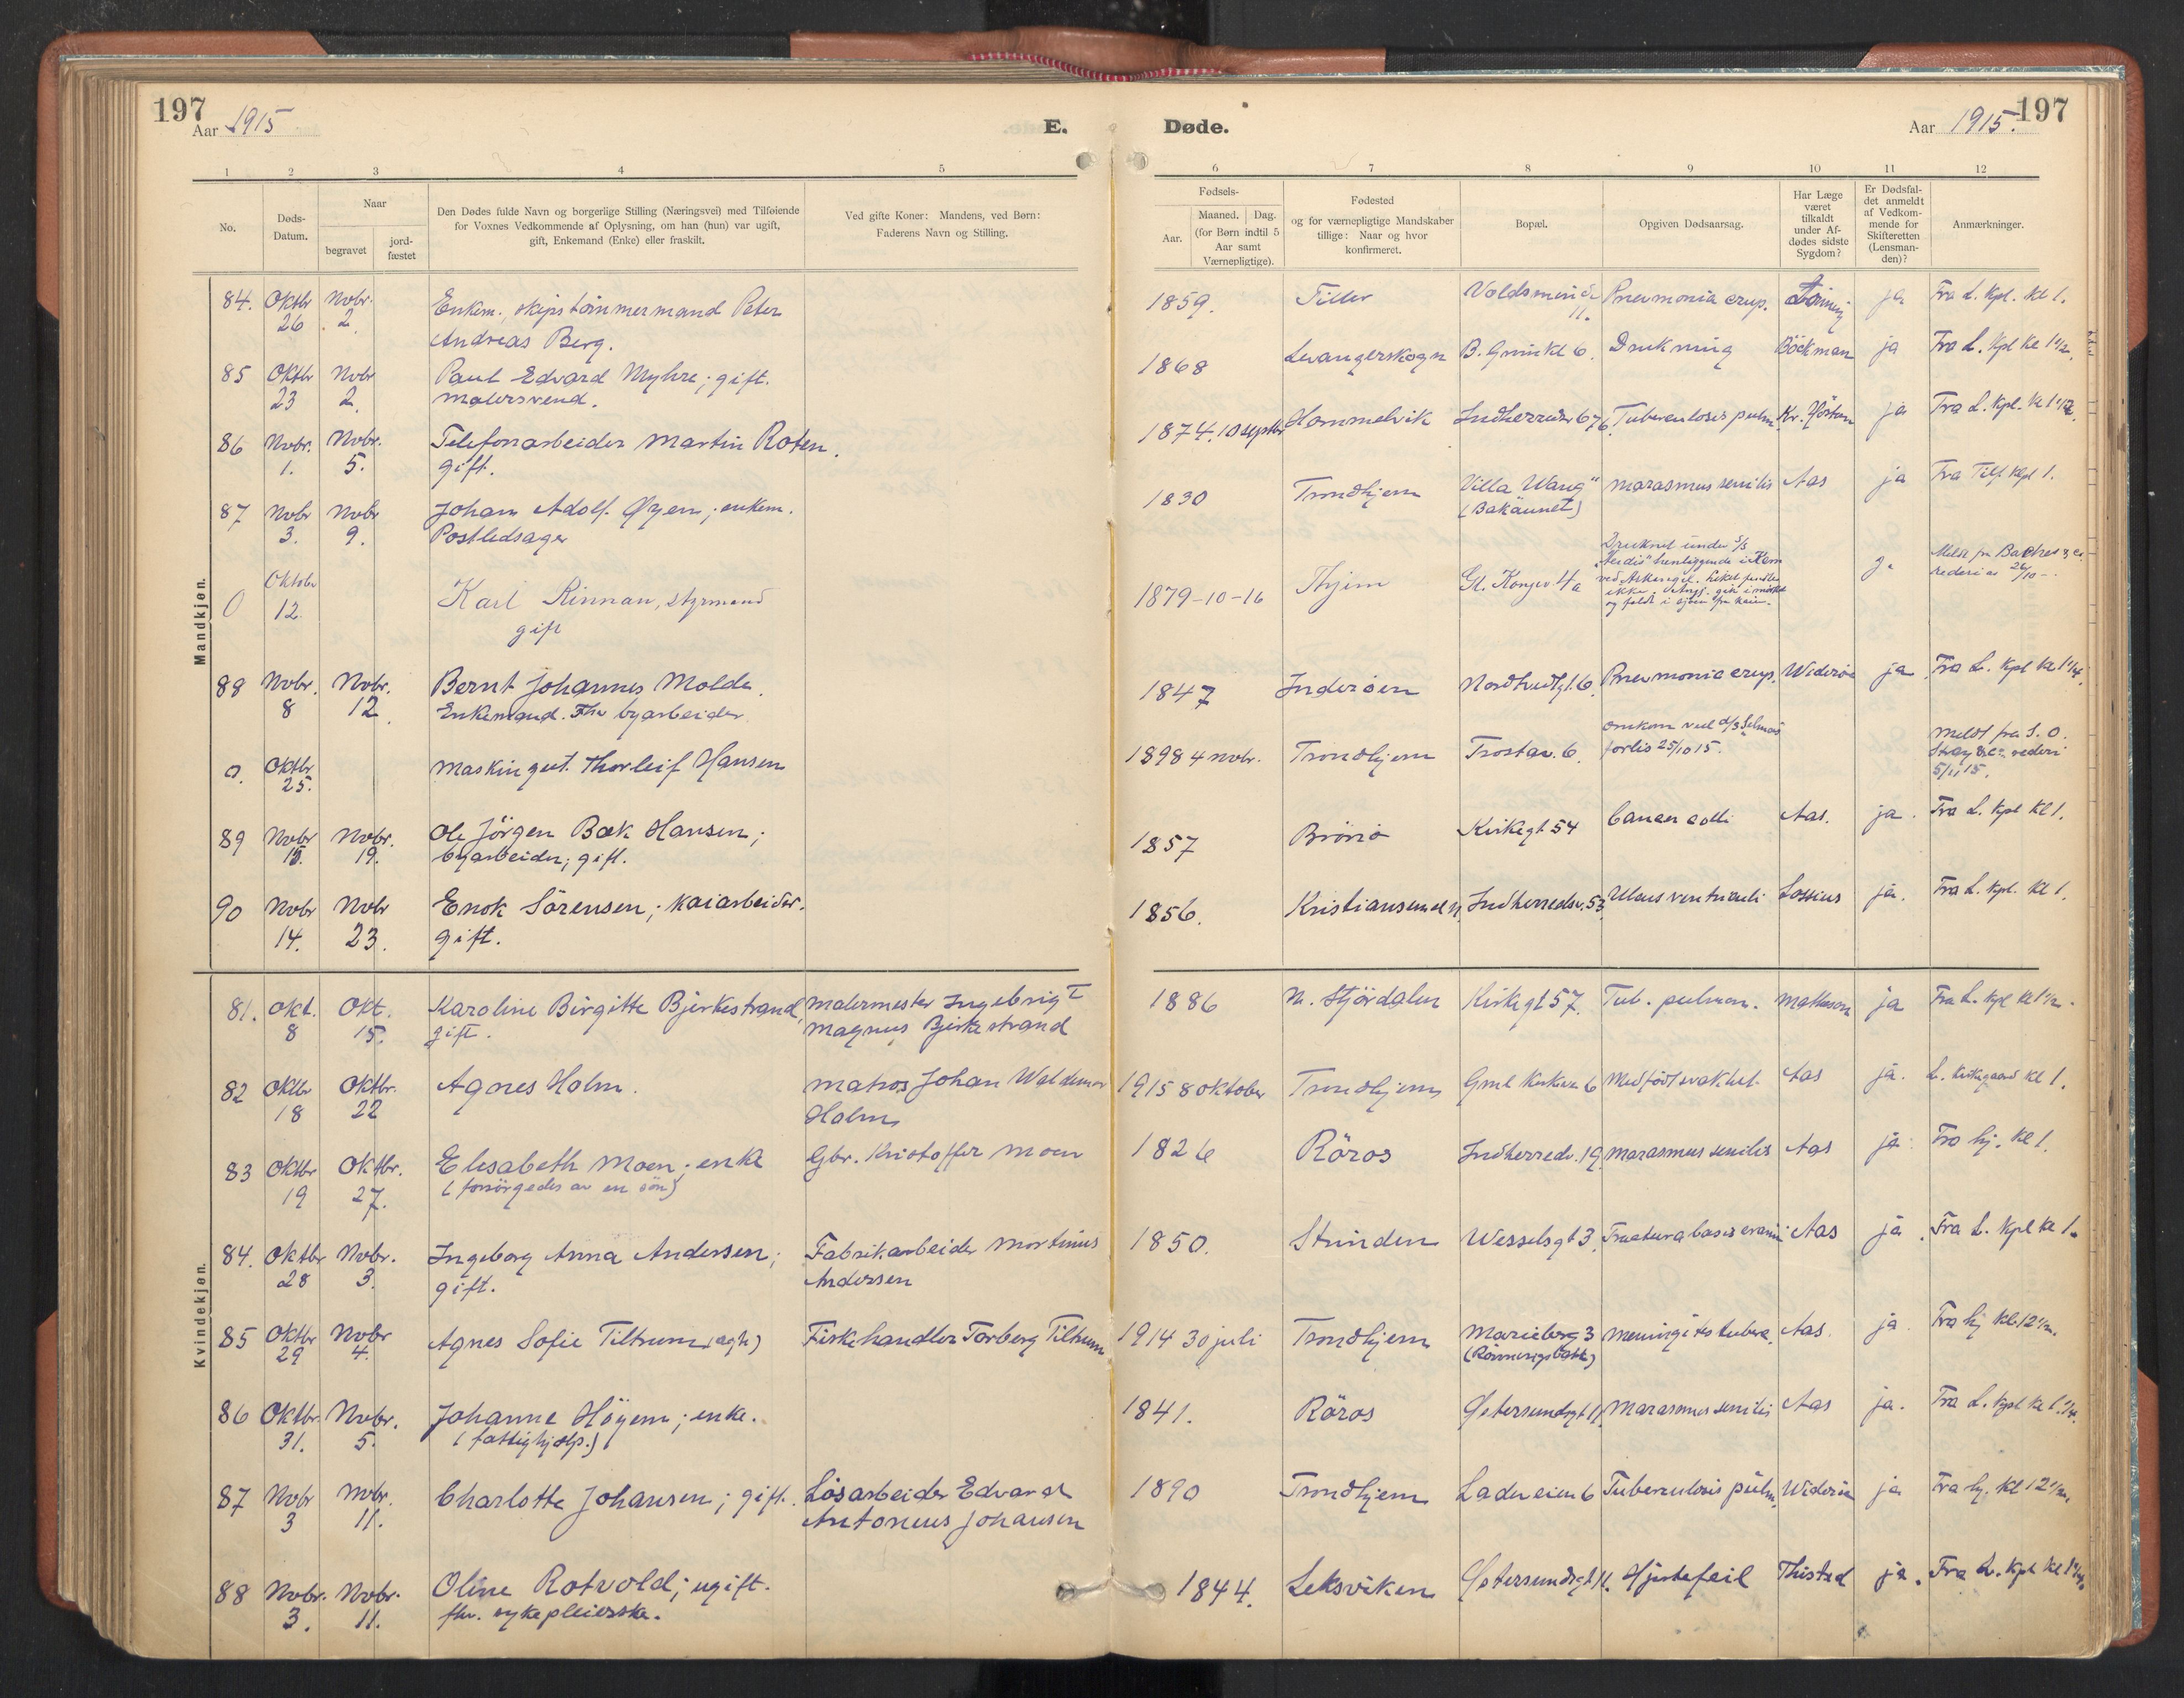 197
Aar 1915
E.
Døde.
Aar 1915.
197
1 2 3 4 5 6 7 8 9 10 11 12
No.
Døds-
Datum.
Naar
begravet
jord-
fæstet
Den Dødes fulde Navn og borgerlige Stilling (Næringsvei) med Tilføiende
for Voxnes Vedkommende af Oplysning, om han (hun) var ugift,
gift, Enkemand (Enke) eller fraskilt.
Ved gifte Koner: Mandens, ved Børn:
Faderens Navn og Stilling.
Fødsels-
Aar.
Maaned. Dag.
(for Børn indtil 5
Aar samt
Værnepligtige).
Fødested
og for værnepligtige Mandskaber
tillige: Naar og hvor
konfirmeret.
Bopæl.
Opgiven Dødsaarsag.
Har Læge
været
tilkaldt
under Af-
dødes sidste
Sygdom?
Er Dødsfal-
det anmeldt
af Vedkom-
mende for
Skifteretten
(Lensman-
den)?
Anmærkninger.
Mandkjøn.
84. Oktbr Nobr. Enkem., skipstömmermand Peter 1859. Tiller Pneumonia crup. ja Fra L. Kpl. Kl 1.
26 2. Andreas Berg. 11.
85 Oktbr Nobr Paul Edvard Myhre; gift. 1868 Levangerskogn 6. Drukning Böckman ja Fra L. Kpl Kl 1 1/2.
23 2. Malersvend.
86 Nobr. Nobr. Telefonarbeider Martin Roten. 1874. 10 septbr Hommelvik Tuberculosis pulm. ja Fra L. Kpl. Kl 1 1/2.
1. 5. gift.
87 Nobr Nobr Johan Adolf Øyen; enkem. 1830 Trondhjem "Villa Wang" marasmus senilis Aas ja Fra Kpl 1.
3. 9. Postledsager (Bakaunet)
0 Oktober Karl Rinnan, styrmand 1879-10-16 Thjem Gl. Kongev 4a Druknet under ja
12. gift
88 Nobr. Nobr. Bernt Johannes Molde. 1847 Inderøen 6. Pneumonia crup. Widerøe ja Fra L. Kpl Kl 1 1/4.
8 12. Enkemand. Fhv byarbeider
0. Oktbr Maskingut. Thorleif Hansen 1898 4 nobr. Trondhjem 6. omkom ved d/s "Selmas" meldt fra S. O.
25. forlis 25/10 15. rederi
5/11 15.
89 Nobr Nobr. Ole Jörgen Bæk Hansen; 1857 Brönö Kirkegt 54 Cancer colli Aas. ja. Fra L. Kpl Kl 1.
15. 19. byarbeider; gift.
90 Nobr Nobr Enok Sörensen; kaiarbeider. 1856. Kristiansund N. Indherredsv. 53 Ulcus ventriculi Lossius ja. Fra L. Kpl. Kl 1.
14. 23. gift.
Kvindekjøn.
81. Okt. Okt. Karoline Birgitte Bjerkestrand, Malermester Ingebrigt 1886 N. Stjördalen Kirkegt 57. Tub. pulmon. ja Fra L. Kpl Kl 1 1/2.
8 15. gift. Magnus Bjerkestrand
82 Oktbr Oktbr. Agnes Holm. Matros Johan Waldemar 1915 8 oktober Trondhjem 6 Medfödt svakhet Aas ja. L. Kirkegaard Kl 1.
18 22 Holm
83 Oktbr Oktbr. Elisabeth Moen; enke Gbr. Kristoffer Moen 1826 Röros Indherredv. 19. marasmus senilis Aas ja Fra hj. Kl 1.
19 27. (forsörgedes av en sön)
84. Oktbr Nobr. Ingeborg Anna Andersen; Fabrikarbeider Martinius 1850. Strinden Wesselsgt 3. Fractura basis cranii Aas ja. Fra L. Kpl Kl 1.
28 3. gift. Andersen
85 Oktbr Nobr Agnes Sofie Tiltrum (ægte) Fiskehandler Torberg Tiltrum 1914 30 juli Trondhjem Marieborg 3 Meningitis tuberc. Aas. ja. Fra hj Kl. 12 1/2.
29 4.
86 Oktbr. Nobr. Johanne Höyem; enke. 1841. Röros Østersundsgt 11. Marasmus senilis Aas ja. Fra L. Kpl Kl 1 1/4.
31. 5. (fattighjælp.)
87 Nobr Nobr. Charlotte Johansen; gift. Lösarbeider Edvard 1890 Trondhjem Ladeveien 6 Tuberculosis pulm. Widerøe ja Fra hj. Kl 12 1/2.
3 11. Antonius Johansen
88 Nobr. Nobr. Oline Rotvold; ugift. 1844. Leksviken Østersundsgt 11. Hjertefeil Thisted ja. Fra L. Kpl Kl 1 1/2.
3. 11. fhv. sykepleierske.